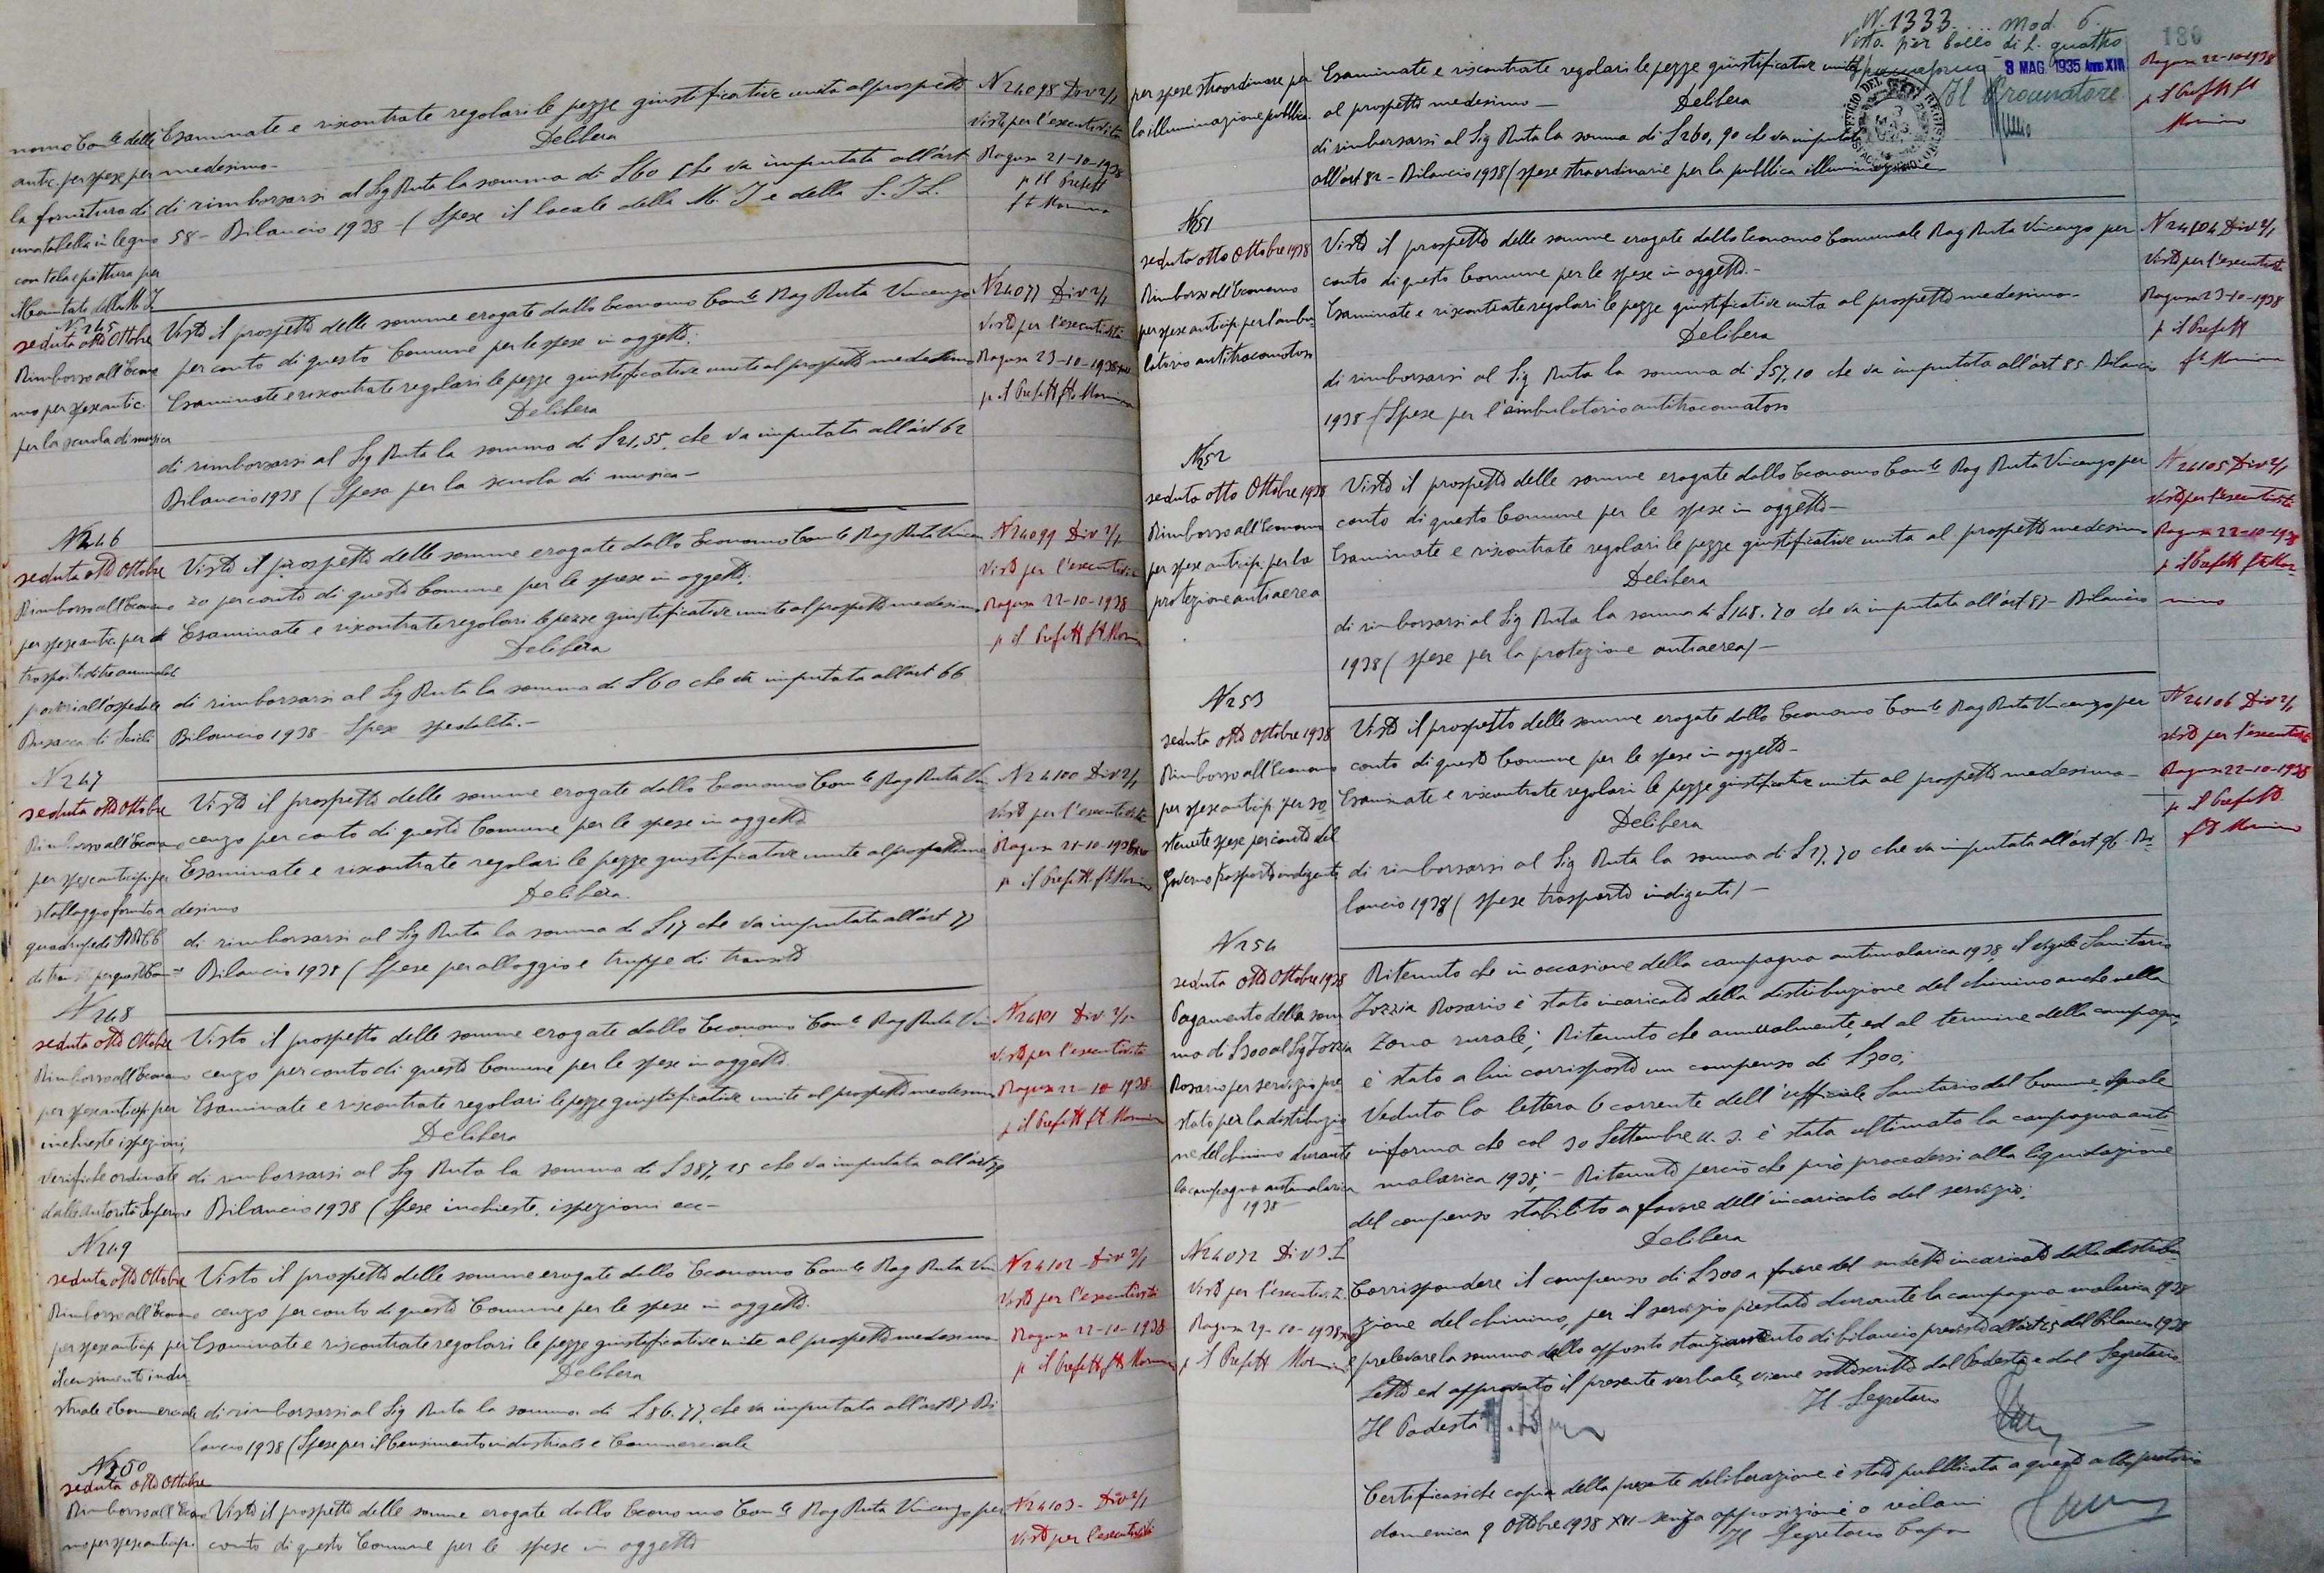 nomo Com.le delle
antic. per spese per
la fornitura di
una tabella in legno
con tela e pittura per
Comitato della M I
Esaminate e riscontrate regolari le pezze giustificative unite al prospetto
medesimo-
Delibera
di rimborsarsi al Sig Ruta la somma di £60 che va imputata all'art
58- Bilancio 1938 -( Spese il locale della M. I e della
N 24098 Div 2/1
Visto per l'esecutività
Ragusa 21-10-1938
p Il Prefett
ft Mormino
N. 245
seduta otto Ottobre
Rimborso all'Econo
mo per spese antic.
per la scuola di musica
Visto il prospetto delle somme erogate dallo Economo Com.le Rag Ruta Vincenzo
per conto di questo Comune per le spese in oggetto.
Esaminate e riscontrate regolari le pezze giustificative unite al prospetto medesimo
Delibera
di rimborsarsi al Sig Ruta la somma di £21,55. che va imputata all'art 62
Bilancio 1938 ( Spesa per la scuola di musica-
N 24077 Div 2/1
Visto per l'esecutività
Ragusa 23-10-1938
p il Prefett fto Mormino
N 246
seduta otto Ottobre
Rimborso all'Economo
per spese antic. per
trasporti di tre ammalati
poveri all'ospedale
Busacca di Scicli
Visto il prospetto delle somme erogate dallo Economo Com le Rag Ruta Vincen
zo per conto di questo Comune per le spese in oggetto.
Esaminate e riscontrate regolari le pezze giustificative unite al prospetto medesimo
Delibera
di rimborsarsi al Sig Ruta la somma di £60 che va imputata all'art 66
Bilancio 1938- Spese spedalità.-
N 24099 Div 2/1
Visto per l'esecutività
Ragusa 22-10-1938
p il Prefett ft Mormino
N 247
seduta otto Ottobre
Rimborso all'Economo
per spese anticip. per
stallaggio fornito a
quadrupedi RR CC
di transito per questo Comne
Visto il prospetto delle somme erogate dallo Economo Com le Rag Ruta Vin
cenzo per conto di questo Comune per le spese in oggetto
Esaminate e riscontrate regolari le pezze giustificative unite al prospetto me
desimo
Delibera.
di rimborsarsi al Sig Ruta la somma di £17 che va imputata all'art 77
Bilancio 1938 ( Spese per alloggio e truppe di transito
N 24100 Div 2/1
Visto per l'esecutività
Ragusa 21-10-1938
p il Prefett ft Mormino
N 248
seduta otto Ottobre
Rimborso all'Economo
per spese anticip. per
inchieste ispezioni,
verifiche ordinate
dalle Autorità Superiore
Visto il prospetto delle somme erogate dallo Economo Com le Rag Ruta Vin
cenzo per conto di questo Comune per le spese in oggetto.
Esaminate e riscontrate regolari le pezze giustificative unite al prospetto medesimo
Delibera
di rimborsarsi al Sig Ruta la somma di £387,25 che va imputata all'art
Bilancio 1938 ( Spese inchieste, ispezioni ecc-
N 24101 Div 2/1
Visto per l'esecutività
Ragusa 22-10-1938
p il Prefett ft Mormino
N 249
seduta otto Ottobre
Rimborso all'Economo
per spese anticip. per
il censimento indu-
striale e Commerciale
Visto il prospetto delle somme erogate dallo Economo Com le Rag Ruta Vin
cenzo per conto di questo Comune per le spese in oggetto.
Esaminate e riscontrate regolari le pezze giustificative unite al prospetto medesimo
Delibera
di rimborsarsi al Sig Ruta la somma di £86.77, che va imputata all'art 87 Bi
lancio 1938 ( Spese per il Censimento industriale e Commerciale
N 24102 Div 2/1
Visto per l'esecutività
Ragusa 22-10-1938
p il Prefett ft Mormino
N 250
seduta otto Ottobre
Rimborso all'Econo
mo per spese anticip.
Visto il prospetto delle somme erogate dallo Economo Com le Rag Ruta Vincenzo per
conto di questo Comune per le spese in oggetto
N 24103- Div 2/1
Visto per l'esecutività
N. 1333. mod. 6.
Visto per bollo di £. quattro
8 MAG. 1935 Anno XIII
Il Procuratore
180
per spese straordinarie per
la illuminazione pubblica
Esaminate e riscontrate regolari le pezze giustificative unite
al prospetto medesimo-
Delibera
di rimborsarsi al Sig Ruta la somma di £260,90 che va imputata
all'art 82- Bilancio 1938 ( spese straordinarie per la pubblica illuminazione
Ragusa 22-10-1938
p Il Prefett ft
Mormino
N 251
seduta otto Ottobre 1938
Rimborso all'Economo
per spese anticip. per l'ambu-
latorio antitracomatoso
Visto il prospetto delle somme erogate dallo Economo Comunale Rag Ruta Vincenzo per
conto di questo Comune per le spese in oggetto.-
Esaminate e riscontrate regolari le pezze giustificative unite al prospetto medesimo-
Delibera
di rimborsarsi al Sig Ruta la somma di £57,10 che va imputata all'art 85- Bilancio
1938 ( Spese per l'ambulatorio antitracomatoso
N 24104 Div 2/1
Visto per l'esecutività
Ragusa 23-10-1938
p il Prefett
ft Mormino
N 252
seduta otto Ottobre 1938
Rimborso all'Economo
per spese anticip. per la
protezione antiaerea
Visto il prospetto delle somme erogate dallo Economo Com.le Rag Ruta Vincenzo per
conto di questo Comune per le spese in oggetto-
Esaminate e riscontrate regolari le pezze giustificative unite al prospetto medesimo
Delibera
di rimborsarsi al Sig Ruta la somma di £148.70 che va imputata all'art 87- Bilancio
1938 ( spese per la protezione antiaerea)-
N 24105 Div 2/1
Visto per l'esecutività
Ragusa 22-10-1938
p il Prefett ft Mor-
mino
N 253
seduta otto Ottobre 1938
Rimborso all'Economo
per spese anticip. per so
stenute spese per conto del
Governo (trasporto indigenti
Visto il prospetto delle somme erogate dallo Economo Com le Rag Ruta Vincenzo per
conto di questo Comune per le spese in oggetto-
Esaminate e riscontrate regolari le pezze giustificative unite al prospetto medesimo-
Delibera
di rimborsarsi al Sig Ruta la somma di £27,70 che va imputata all'art 96. Bi-
lancio 1938 ( spese trasporto indigenti)-
N 24106 Div 2/1
Visto per l'esecutività
Ragusa 22-10-1938
p il Prefetto
fto Mormino
N 254
seduta otto Ottobre 1938
Pagamento della som
ma di £300 al Sig Tozzia
Rosario per servizio pre
stato per la distribuzio
ne del chinino durante
la campagna antimalarica
1938-
Ritenuto che in occasione della campagna antimalarica 1938, il vigile Sanitario
Tozzia Rosario è stato incaricato della distribuzione del chinino anche nella
zona rurale; Ritenuto che annualmente, ed al termine della campagna,
è stato a lui corrisposto un compenso di £300;
Veduta la lettera 6 corrente dell'ufficiale Sanitario del Comune, il quale
informa che col 30 Settembre u. s. è stata ultimata la campagna anti
malarica 1938;- Ritenuto perciò che può procedersi alla liquidazione
del compenso stabilito a favore dell'incaricato del servizio;
Delibera
Corrispondere il compenso di £300 a favore del sudetto incaricato della distribu
zione del chinino, per il servizio prestato durante la campagna malarica 1938
e prelevare la somma dallo apposito stanziamento di bilancio previsto all'art 45 del bilancio 1938
N 24072 Div 3.S
Visto per l'esecutività
Ragusa 29-10-1938
p il Prefett Mormino
Letto ed approvato il presente verbale, viene sottoscritto dal Podestà e dal Segretario
Il Podestà
Il Segretario
Certificasi che copia della presente deliberazione è stata pubblicata a questo albo pretorio
domenica 9 Ottobre 1938 XVI- senza opposizioni o reclami
Il Segretario Capo